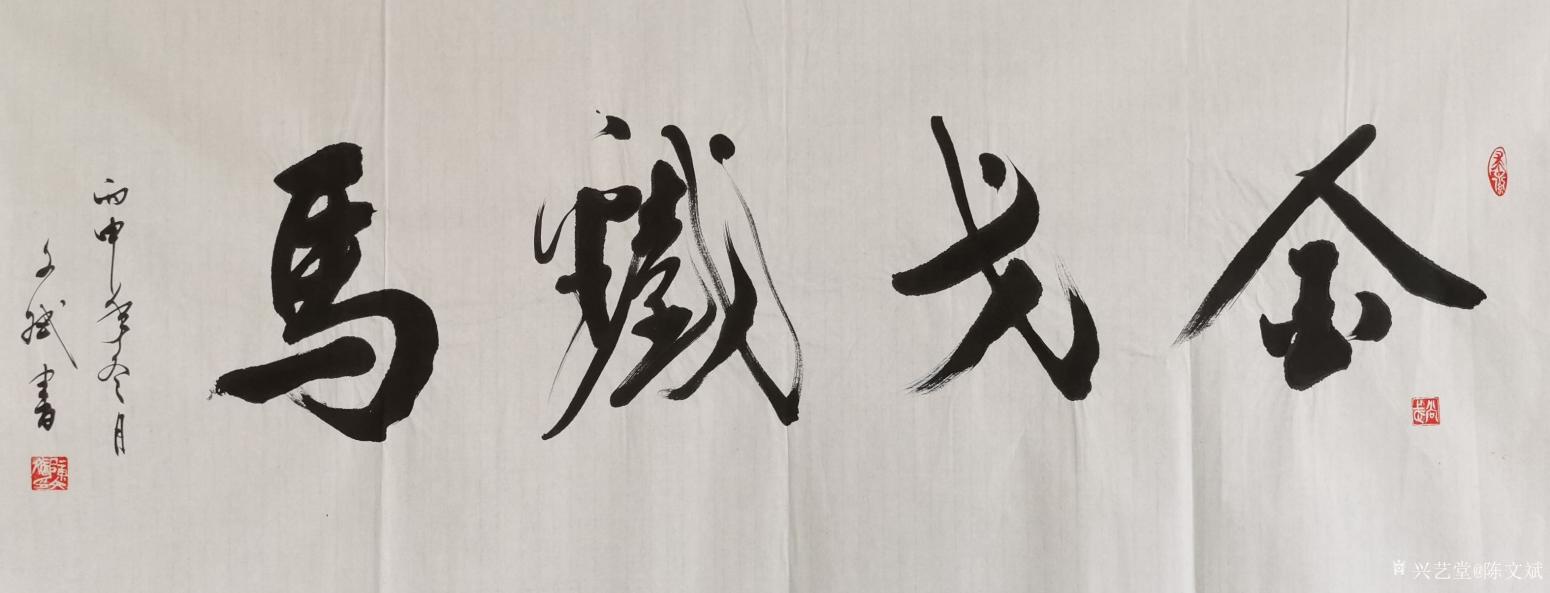 金戈鐵馬
丙申年冬月
文斌書
尚武
兴艺堂@陈文斌